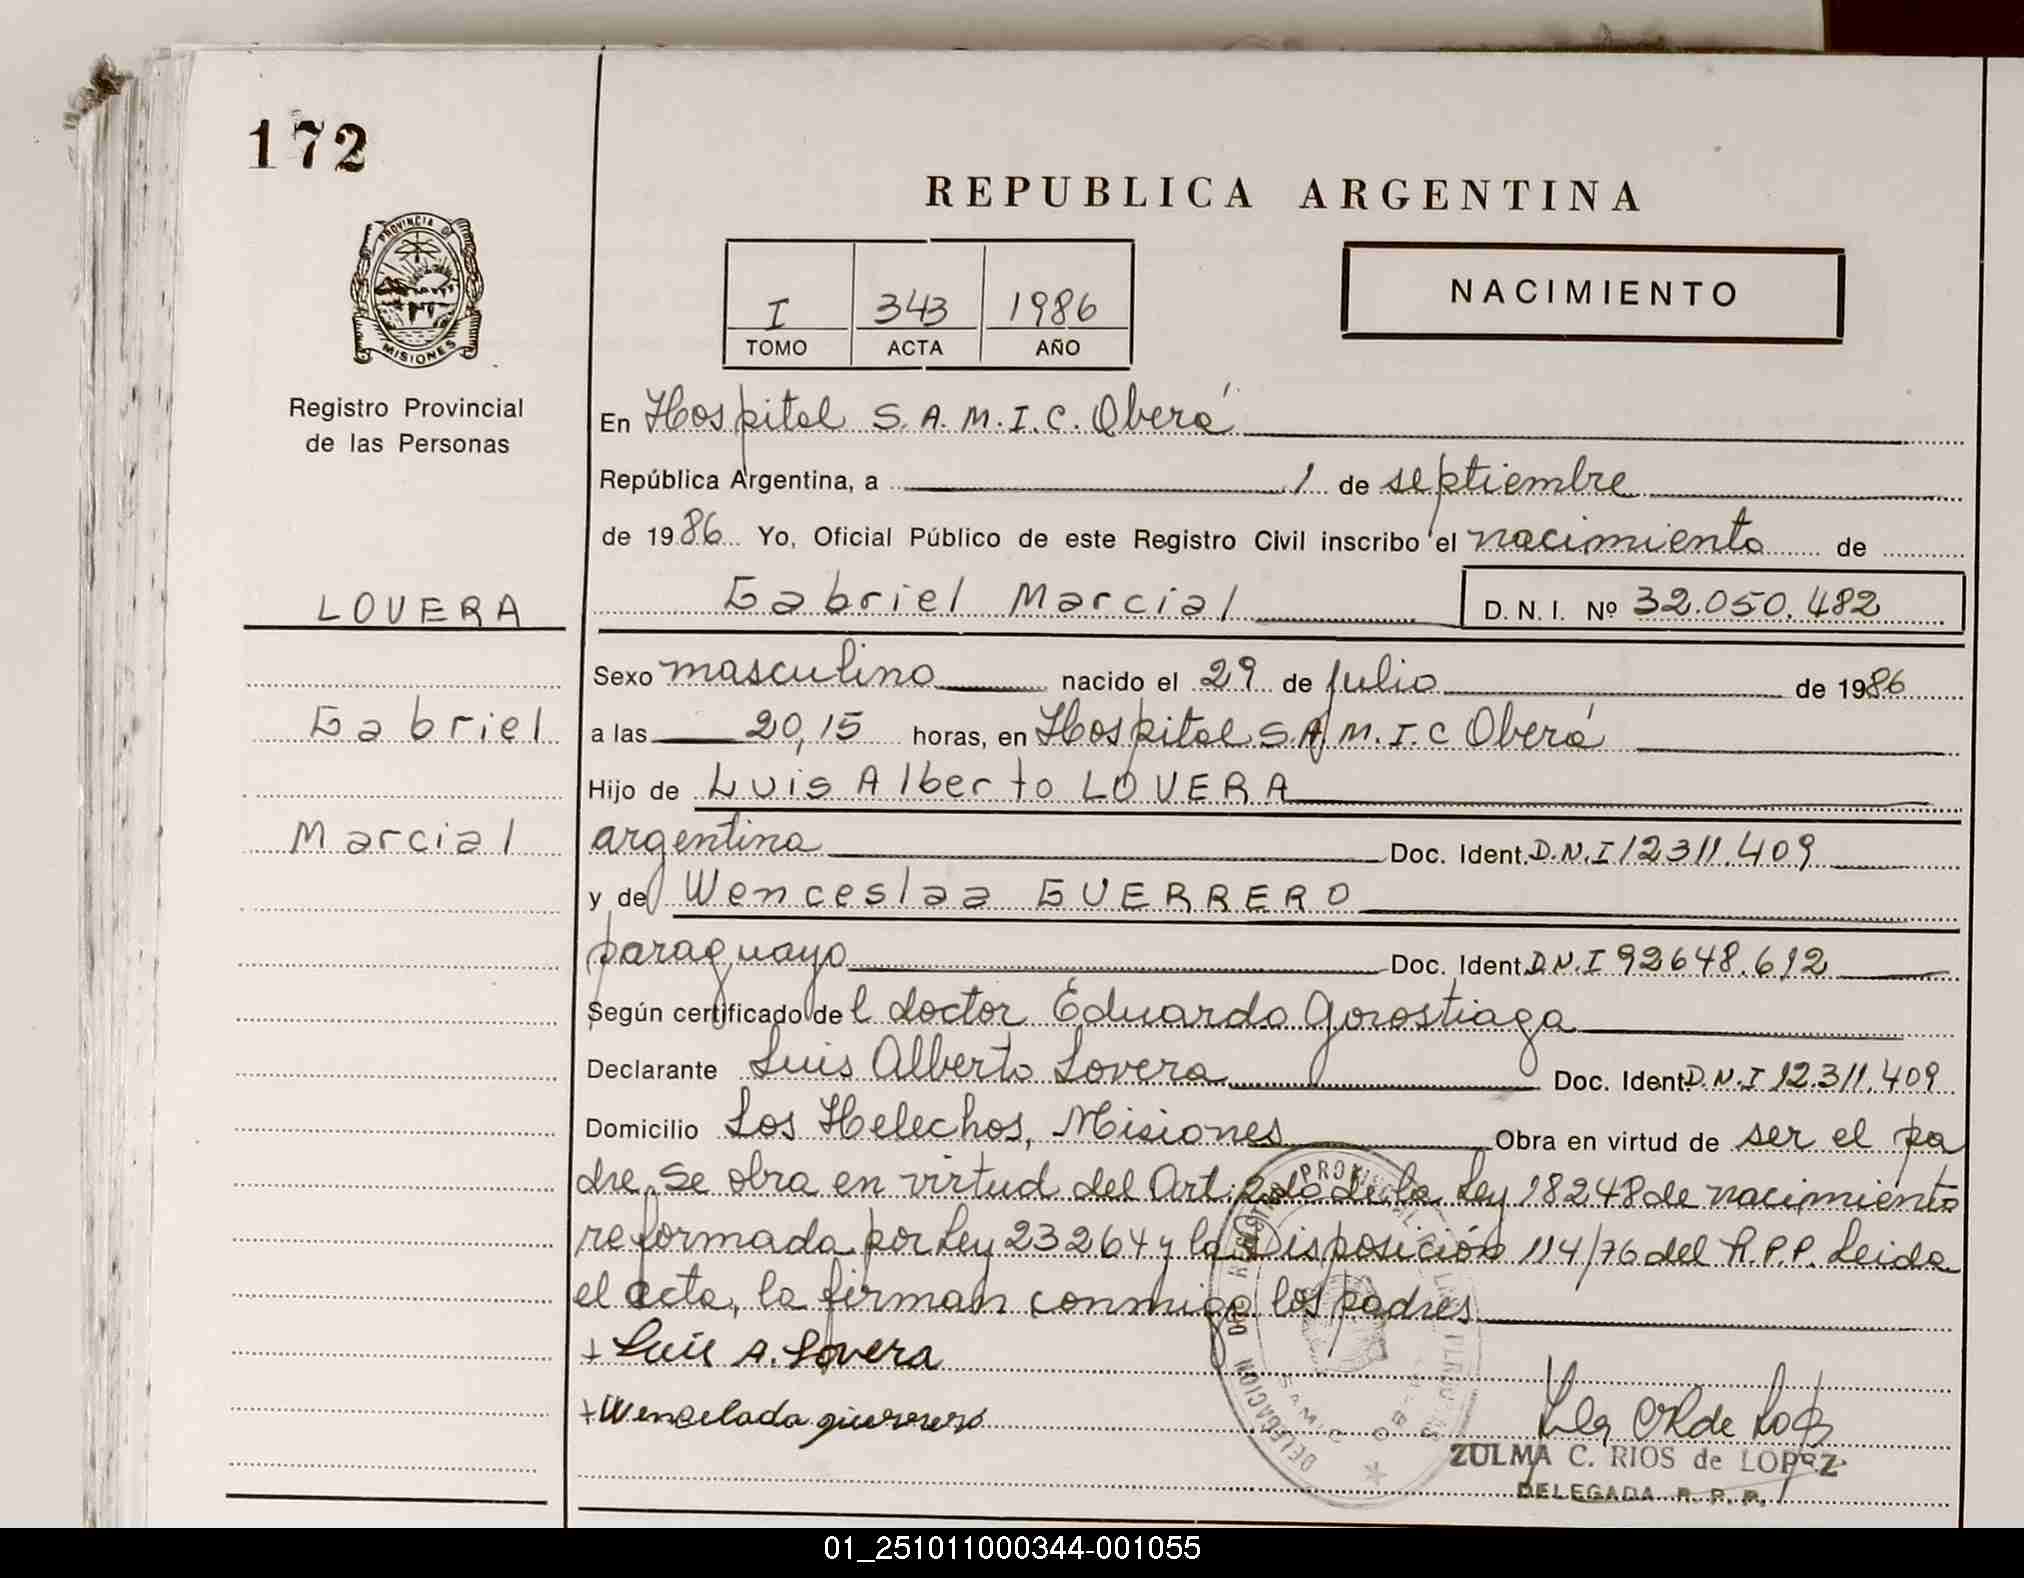 172
REPUBLICA ARGENTINA
PROVINCIA DE
MISIONES
I 343 1986
TOMO ACTA AÑO
NACIMIENTO
Registro Provincial
de las Personas
En Hospital S.A.M.I.C. Oberá
República Argentina, a 1 de septiembre
de 1986 Yo, Oficial Público de este Registro Civil inscribo el nacimiento de
LOVERA
Gabriel Marcial D. N. I. Nº 32.050.482
Sexo masculino nacido el 29 de julio de 1986
Gabriel
a las 20,15 horas, en Hospital S.A.M.I.C Oberá
Hijo de Luis Alberto LOVERA
Marcial
argentina Doc. Ident. D.N.I 12311.409
y de Wenceslaa GUERRERO
paraguayo Doc. Ident D.N.I 92648.612
Según certificado del doctor Eduardo Gorostiaga
Declarante Luis Alberto Lovera Doc. Ident D.N.I 12.311.409
Domicilio Los Helechos, Misiones Obra en virtud de ser el pa
dre. Se obra en virtud del Art. 2do de la Ley 18248 de nacimiento
reformada por Ley 23264 y la Disposición 114/76 del R.P.P. Leida
el acta, la firman conmigo los padres
+ Luis A. Lovera
+ Wencelada guerrero
DELEGACION DEL REGISTRO PROVINCIAL
SAMIC OBERA
ZULMA C. RIOS de LOPEZ
DELEGADA R. P. P.
01_251011000344-001055